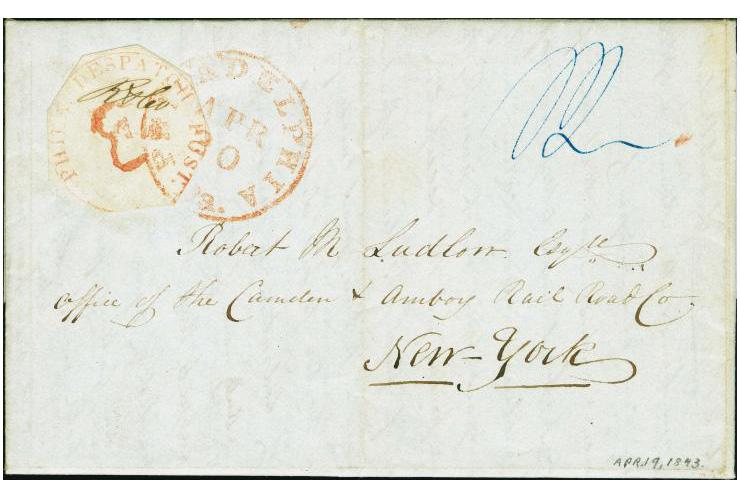 PHILA DESPATCH POST.
R & Co
PHILADELPHIA
APR
Robert M Ludlow Esqre
office of the Camden & Amboy Rail Road Co.
New-York
APR. 19, 1843.